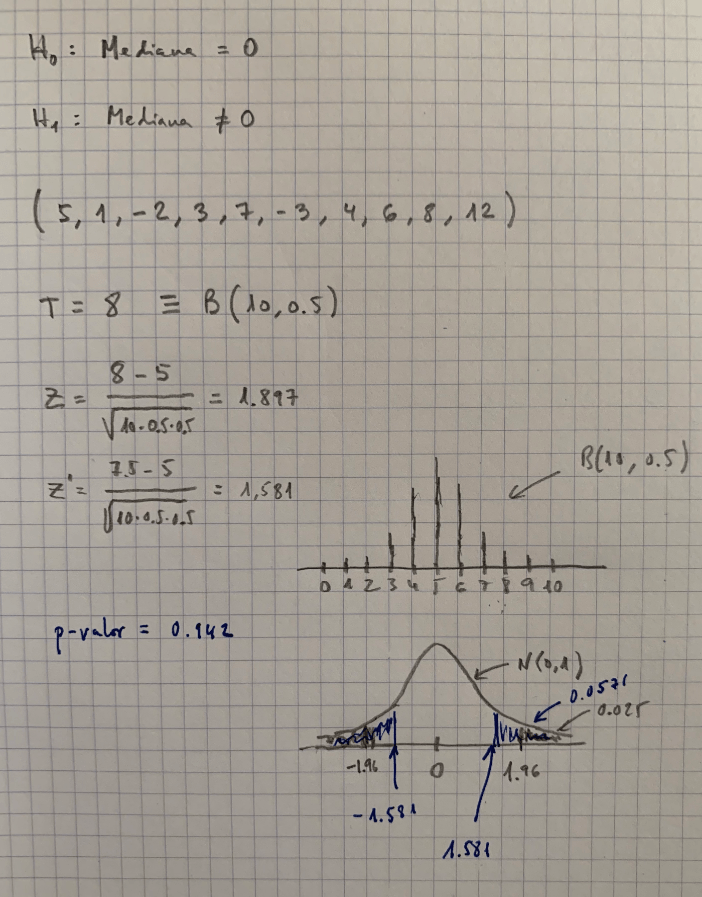 H₀ : Mediana = 0
H₁ : Mediana ≠ 0
( 5, 1, -2, 3, 7, -3, 4, 6, 8, 12 )
T = 8 ≡ B(10, 0.5)
Z = (8 - 5) / √(10·0.5·0.5) = 1.897
Z' = (7.5 - 5) / √(10·0.5·0.5) = 1,581
B(10, 0.5)
0 1 2 3 4 5 6 7 8 9 10
p-valor = 0.142
N(0,1)
0.0571
0.025
-1.96 0 1.96
-1.581
1.581